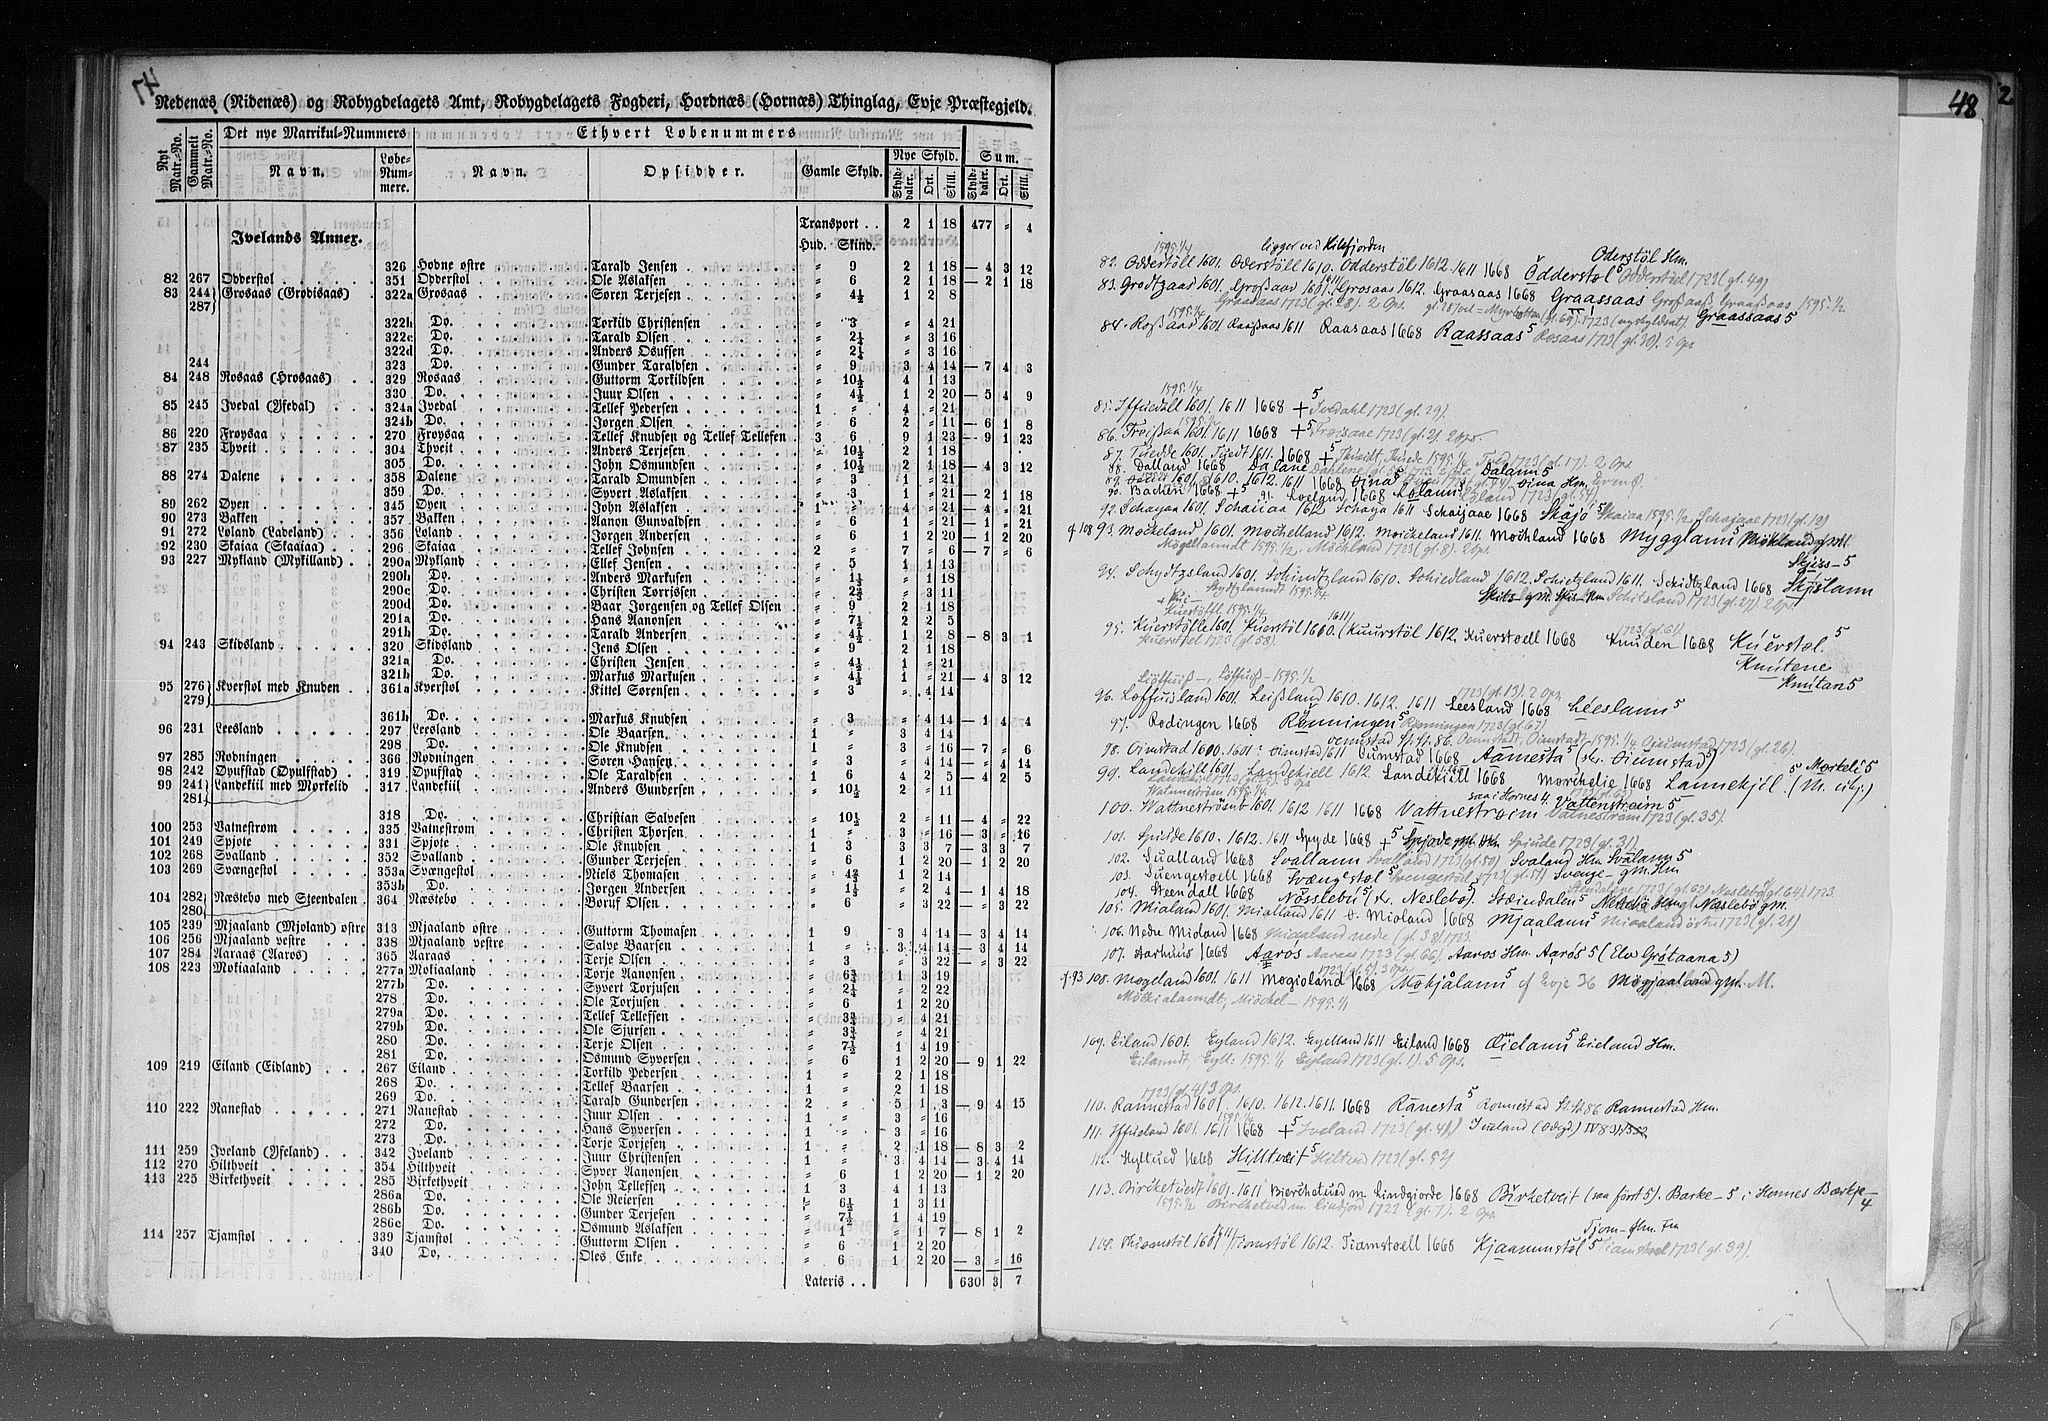 47
Nedenæs (Nidenæs) og Robygdelagets Amt, Robygdelagets Fogderi, Hordnæs (Hornæs) Thinglag, Evje Præstegjeld.
Nyt Matr.-No. Gammelt Matr.-No. Det nye Matrikul-Nummers Ethvert Løbenummers
Navn. Løbe-Nummere. Navn. Opsidder. Gamle Skyld. Nye Skyld. Sum.
Skylddaler. Ort. Skill. Skylddaler. Ort. Skill.
Transport . . 2 1 18 477 „ 4
Ivelands Annex. Hud. Skind.
326 Hodne østre Tarald Jensen „ 9 2 1 18 — 4 3 12
82 267 Odderstol 351 Odderstol Ole Aslaksen „ 6 2 1 18 — 2 1 18
83 244 Grosaas (Grodisaas) 322a Grosaas Søren Terjesen „ 4½ 1 2 8
287
322b Do. Torkild Christensen „ 3 „ 4 21
322c Do. Tarald Olsen „ 2¼ „ 3 16
322d Do. Anders Osufsen „ 2¼ „ 3 16
244 323 Do. Gunder Taraldsen „ 9 3 4 14 — 7 4 3
84 248 Rosaas (Hrosaas) 329 Rosaas Guttorm Torkildsen „ 10½ 4 1 13
330 Do. Juur Olsen „ 4½ 1 2 20 — 5 4 9
85 245 Ivedal (Ifedal) 324a Ivedal Tellef Pedersen 1 „ 4 „ 21
324b Do. Jørgen Olsen „ 6 2 „ 11 — 6 1 8
86 220 Frøysaa 270 Frøysaa Tellef Knudsen og Tellef Tellefsen 3 6 9 1 23 — 9 1 23
87 235 Thveit 304 Thveit Anders Terjesen „ 10½ 2 1 18
305 Do. John Osmundsen „ 10½ 2 1 18 — 4 3 12
88 274 Dalene 358 Dalene Tarald Omundsen „ 3 1 „ 21
359 Do. Syvert Aslaksen „ 3 1 „ 21 — 2 1 18
89 262 Øyen 345 Øyen John Aslaksen 1 „ 4 „ 21 — 4 „ 21
90 273 Bakken 357 Bakken Aanon Gunvaldsen „ 6 1 „ 21 — 1 „ 21
91 272 Loland (Ladeland) 356 Loland Jørgen Andersen „ 6 1 2 20 — 1 2 20
92 230 Skaiaa (Skaaiaa) 296 Skaiaa Tellef Johnsen 2 „ 7 „ 6 — 7 „ 6
93 227 Mykland (Mykilland) 290a Mykland Ellef Jensen „ 5 1 1 13
290b Do. Anders Markusen „ 1½ „ 1 18
290c Do. Christen Torrissen „ 2⅔ „ 3 11
290d Do. Baar Jørgensen og Tellef Olsen „ 9 2 1 18
291a Do. Hans Aanonsen „ 7½ 2 2 5
291b Do. Tarald Andersen „ 4½ 1 2 8 — 8 3 1
94 243 Skidsland 320 Skidsland Jens Olsen „ 9 2 1 18
321a Do. Christen Jensen „ 4½ 1 „ 21
321b Do. Markus Markusen „ 4½ 1 „ 21 — 4 3 12
95 276 Kverstol med Knuden 361a Kverstol Kittel Sørensen „ 3 „ 4 14
279
361b Do. Markus Knudsen „ 3 „ 4 14 — 1 4 4
96 231 Leesland 297 Leesland Ole Baarsen 1 „ 3 4 14
298 Do. Ole Knudsen 1 „ 3 „ 16 — 7 „ 6
97 285 Rødningen 366 Rødningen Søren Hansen „ 3 „ 4 14 — „ 4 14
98 242 Øyufstad (Øyulfstad) 319 Øyufstad Ole Taraldsen 1 6 4 2 5 — 4 2 5
99 241 Landekiil med Mørkelid 317 Landekiil Anders Gundersen „ 10½ 2 „ 11
281
318 Do. Christian Salvesen „ 10½ 2 „ 11 — 4 „ 22
100 253 Vatnestrøm 335 Vatnestrøm Christen Thorsen 1 „ 3 „ 16 — 3 „ 16
101 249 Spjote 331 Spjote Ole Knudsen 1 3 3 3 7 — 3 3 7
102 268 Svalland 352 Svalland Gunder Terjesen „ 6 1 2 20 — 1 2 20
103 269 Svængestol 353a Svængestol Niels Thomasen „ 4⅔ 1 2 14
353b Do. Jørgen Andersen „ 1⅓ „ 2 4 — 1 4 18
104 282 Næstebo med Steendalen 364 Næstebo Boruf Olsen „ 6 „ 3 22 — „ 3 22
280
105 239 Mjaaland (Mjoland) østre 313 Mjaaland østre Guttorm Thomasen 1 9 3 4 14 — 3 4 14
106 256 Mjaaland vestre 338 Mjaaland vestre Salve Baarsen 1 „ 3 4 14 — 3 4 14
107 284 Aaraas (Aaros) 365 Aaraas Terje Olsen „ 3 „ 3 22 — „ 3 22
108 223 Mokiaaland 277a Mokiaaland Torje Aanonsen „ 6¾ 1 3 19
277b Do. Syvert Torjusen „ 2¼ „ 2 22
278 Do. Ole Torjusen „ 6 1 2 20
279a Do. Tellef Tellefsen „ 3¾ „ 4 21
279b Do. Ole Sjursen „ 3¾ „ 4 21
280 Do. Terje Olsen „ 7½ 1 4 19
281 Do. Osmund Syversen „ 6 1 2 20 — 9 1 22
109 219 Eiland (Eidland) 267 Eiland Torkild Pedersen 1 „ 2 1 18
268 Do. Tellef Baarsen 1 „ 2 1 18
269 Do. Tarald Gundersen 2 „ 5 1 3 — 9 4 15
110 222 Ranestad 271 Ranestad Juur Olsen 1 „ 3 „ 16
272 Do. Hans Syversen 1 „ 3 „ 16
273 Do. Torje Torjesen 1 „ 2 1 18 — 8 3 2
111 259 Iveland (Ifeland) 342 Iveland Juur Christensen 1 „ 3 4 14 — 3 4 14
112 270 Hilthveit 354 Hilthveit Syver Aanonsen „ 6 1 2 20 — 1 2 20
113 225 Birkethveit 285 Birkethveit John Tellefsen 1 3 4 1 13
286a Do. Ole Reiersen „ 6½ 1 3 11
286b Do. Gunder Terjesen „ 7½ 1 4 19
286c Do. Osmund Aslaksen „ 1 „ 1 7 — 8 1 2
114 257 Tjamstol 339 Tjamstol Guttorm Olsen „ 6 1 2 20
340 Do. Oles Enke „ 6 1 2 20 — 3 „ 16
Lateris . . 630 3 7
48
2
1595.1/4 ligger ved Kilefjorden Oderstöl Hm.
82. Oddertöll 1601. Oderstöll 1610. Odderstöl 1612. 1611 1668 Ödderstøl 5 Odderstöel 1723 (gl. 49)
83. Grodtzaas 1601. Großaas 1601. Grosaas 1612. Graasaas 1668 Graassaas Großaaß Graaßaas 1595.1/2
Graasaas 1723 (gl. 28). 2 Ops. Graassaas 5
1595.1/2
84. Roßaas 1601 Raaßaas 1611 Raasaas 1668 Raassaas 5 Rosaas 1723 (gl. 30). 2 Ops
1595.1/4
85. Iffuedall 1601. 1611 1668 + 5 Ivedahl 1723 (gl. 29).
1595.1/2
86. Froißaa 1601. 1611 1668 + 5 Froisaae 1723 (gl. 2). 2 Ops.
87. Tuedde 1601. Tuedt 1611. 1668 + 5 1595.1/2 1723 (gl. 17). 2 Ops
88. Dalland 1668 Dalane Dalann 5
89. 1601. 1610. 1612. 1611 1668 Øina 5 Øina Hm.
90. Bachen 1668 + 5 91. Loeland 1668 Lolann 5 Loland 1723 (gl. 54)
92. Schayaa 1601. Schaiiaa 1612 Schaya 1611 Schaijaae 1668 Skajó 5 Skaiaa 1595.1/2 Schajaae 1723 (gl. 12)
cf 108 93. Møckeland 1601. Mochelland 1612. Morckeland 1611. Mochland 1668 Mygglann 5
Mögellanndt 1595.1/2. Möchland 1723 (gl. 8). 2 Ops. Skjiss- 5
94. Schydtzsland 1601. Schindtzland 1610. Schiedland 1612. Schietzland 1611. Schidtzland 1668 Skjislann
Skydtzlanndt 1595.1/4 Schitsland 1723 (gl. 27). 2 Ops
Kuerstöll 1595.1/4 1611
95. Kuerstölle 1601 Kuerstöl 1600. (Kuurstöl 1612. Kuerstoell 1668 Knuden 1668 Kuerstøl 5
Kuerstoel 1723 (gl. 58). 1723 (gl. 61).
Knutene
Knutan 5
1595.1/2
96. Loffuisland 1601. Leißland 1610. 1612. 1611 Leesland 1668 Leeslann 5
1723 (gl. 13). 2 Ops
97. Rodingen 1668 Rønningen 5 Rønningen 1723 (gl. 67)
98. Oimstad 1600. 1601. Oimstad 1611 Oumstad 1668 Aamesta 5 1595.1/4 1723 (gl. 26).
99. Landekill 1601. Landekiell 1612 Landekiell 1668 Morchelie 1668 Lannekjil 5 Mørkeli 5
saa i Hornes 4. Vattenstraim 5
100. Wattneströmb 1601. 1612 1611 1668 Vattnestrøim Vatnestrøm 1723 (gl. 35).
101. Spiude 1610. 1612. 1611 Spyde 1668 + 5 Spiude 1723 (gl. 31).
102. Sualland 1668 Svallann Svalland 1723 (gl. 50) Svaland Hm Svalann 5
103. Suengestoell 1668 Svængestøl 5 Svengestöl 1723 (gl. 51) Svenge- gm. Hm
104. Steendall 1668 Nösslebú 5 Neslebø 5. Stæindalen 5 Neslebø gm.
105. Mialand 1601. Mialland 1611 Mioland 1668 Mjaalann 5 1723 (gl. 21)
106. Nedre Mioland 1668 Miaaland nedre (gl. 38) 1723
107. Aarhuus 1668 Aarós Aaraas 1723 (gl. 66) Aaros Hm. Aarøs 5 (Elv Grøtaana 5)
1723 (gl. 5). 3 Ops.
cf 93 108. Mogeland 1601. 1611 Mogioland 1668 Mokjålann 5 cf Evje 36
Möckialanndt, Miöchel- 1595.1/1
109. Eiland 1601. Eyland 1612. Eyelland 1611 Eiland 1668 Eieland Hm.
Eilanndt, Eyll: 1595.1/1 Eyland 1723 (gl. 1). 5 Ops.
1723 (gl. 4) 3 Ops.
110. Rannestad 1601. 1610. 1612. 1611. 1668 Ranesta 5 Rannestad Hm.
1595.1/2
111. Iffueland 1601. 1611 1668 + 5 Iveland 1723 (gl. 41)
112. Hyltued 1668 Hilltveit 5 Hiltved 1723 (gl. 52)
113. Birchetuedt 1601. 1611 Bierchetued m. Lindgiorde 1668 Birketveit (saa först 5). Barke- 5 i Hornnes Bærkje- 4
1595.1/2 Birchetved m. Lindjord 1723 (gl. 7). 2 Ops
Tjom- Hm.
114. Thiomstöl 1601 Tiomstöl 1612. Tiamstoell 1668 Kjaammstöl 5 Tiamstoel 1723 (gl. 39).